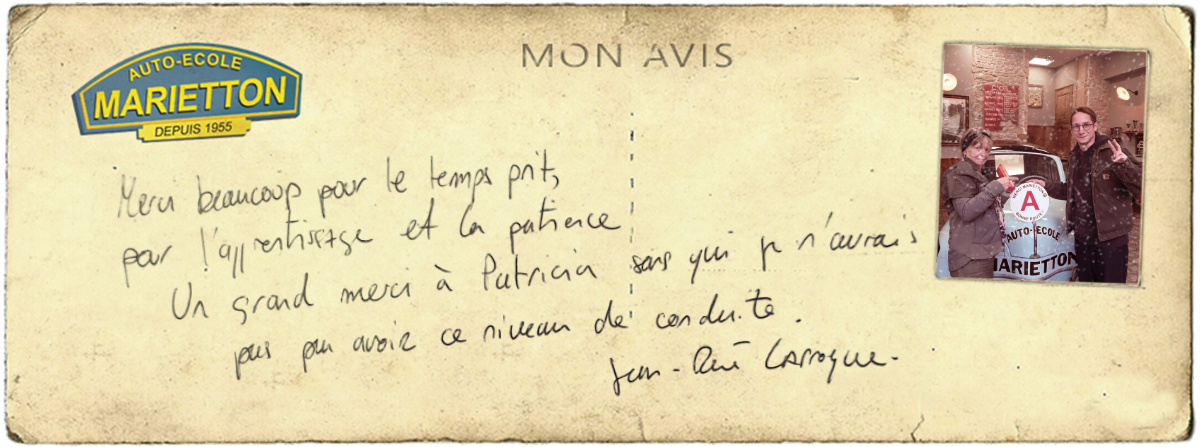 MON AVIS
AUTO-ECOLE
MARIETTON
DEPUIS 1955
Merci beaucoup pour le temps prit,
pour l'apprentissage et la patience
Un grand merci à Patricia sans qui je n'aurais
pas pu avoir ce niveau de conduite.
Jean-René Larroque-
A
AUTO-ECOLE
MARIETTON